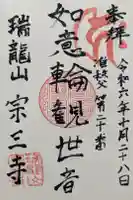 奉拝
令和六年十月二十八日
準秩父第二十番
如意輪観世音
瑞龍山 宗三寺